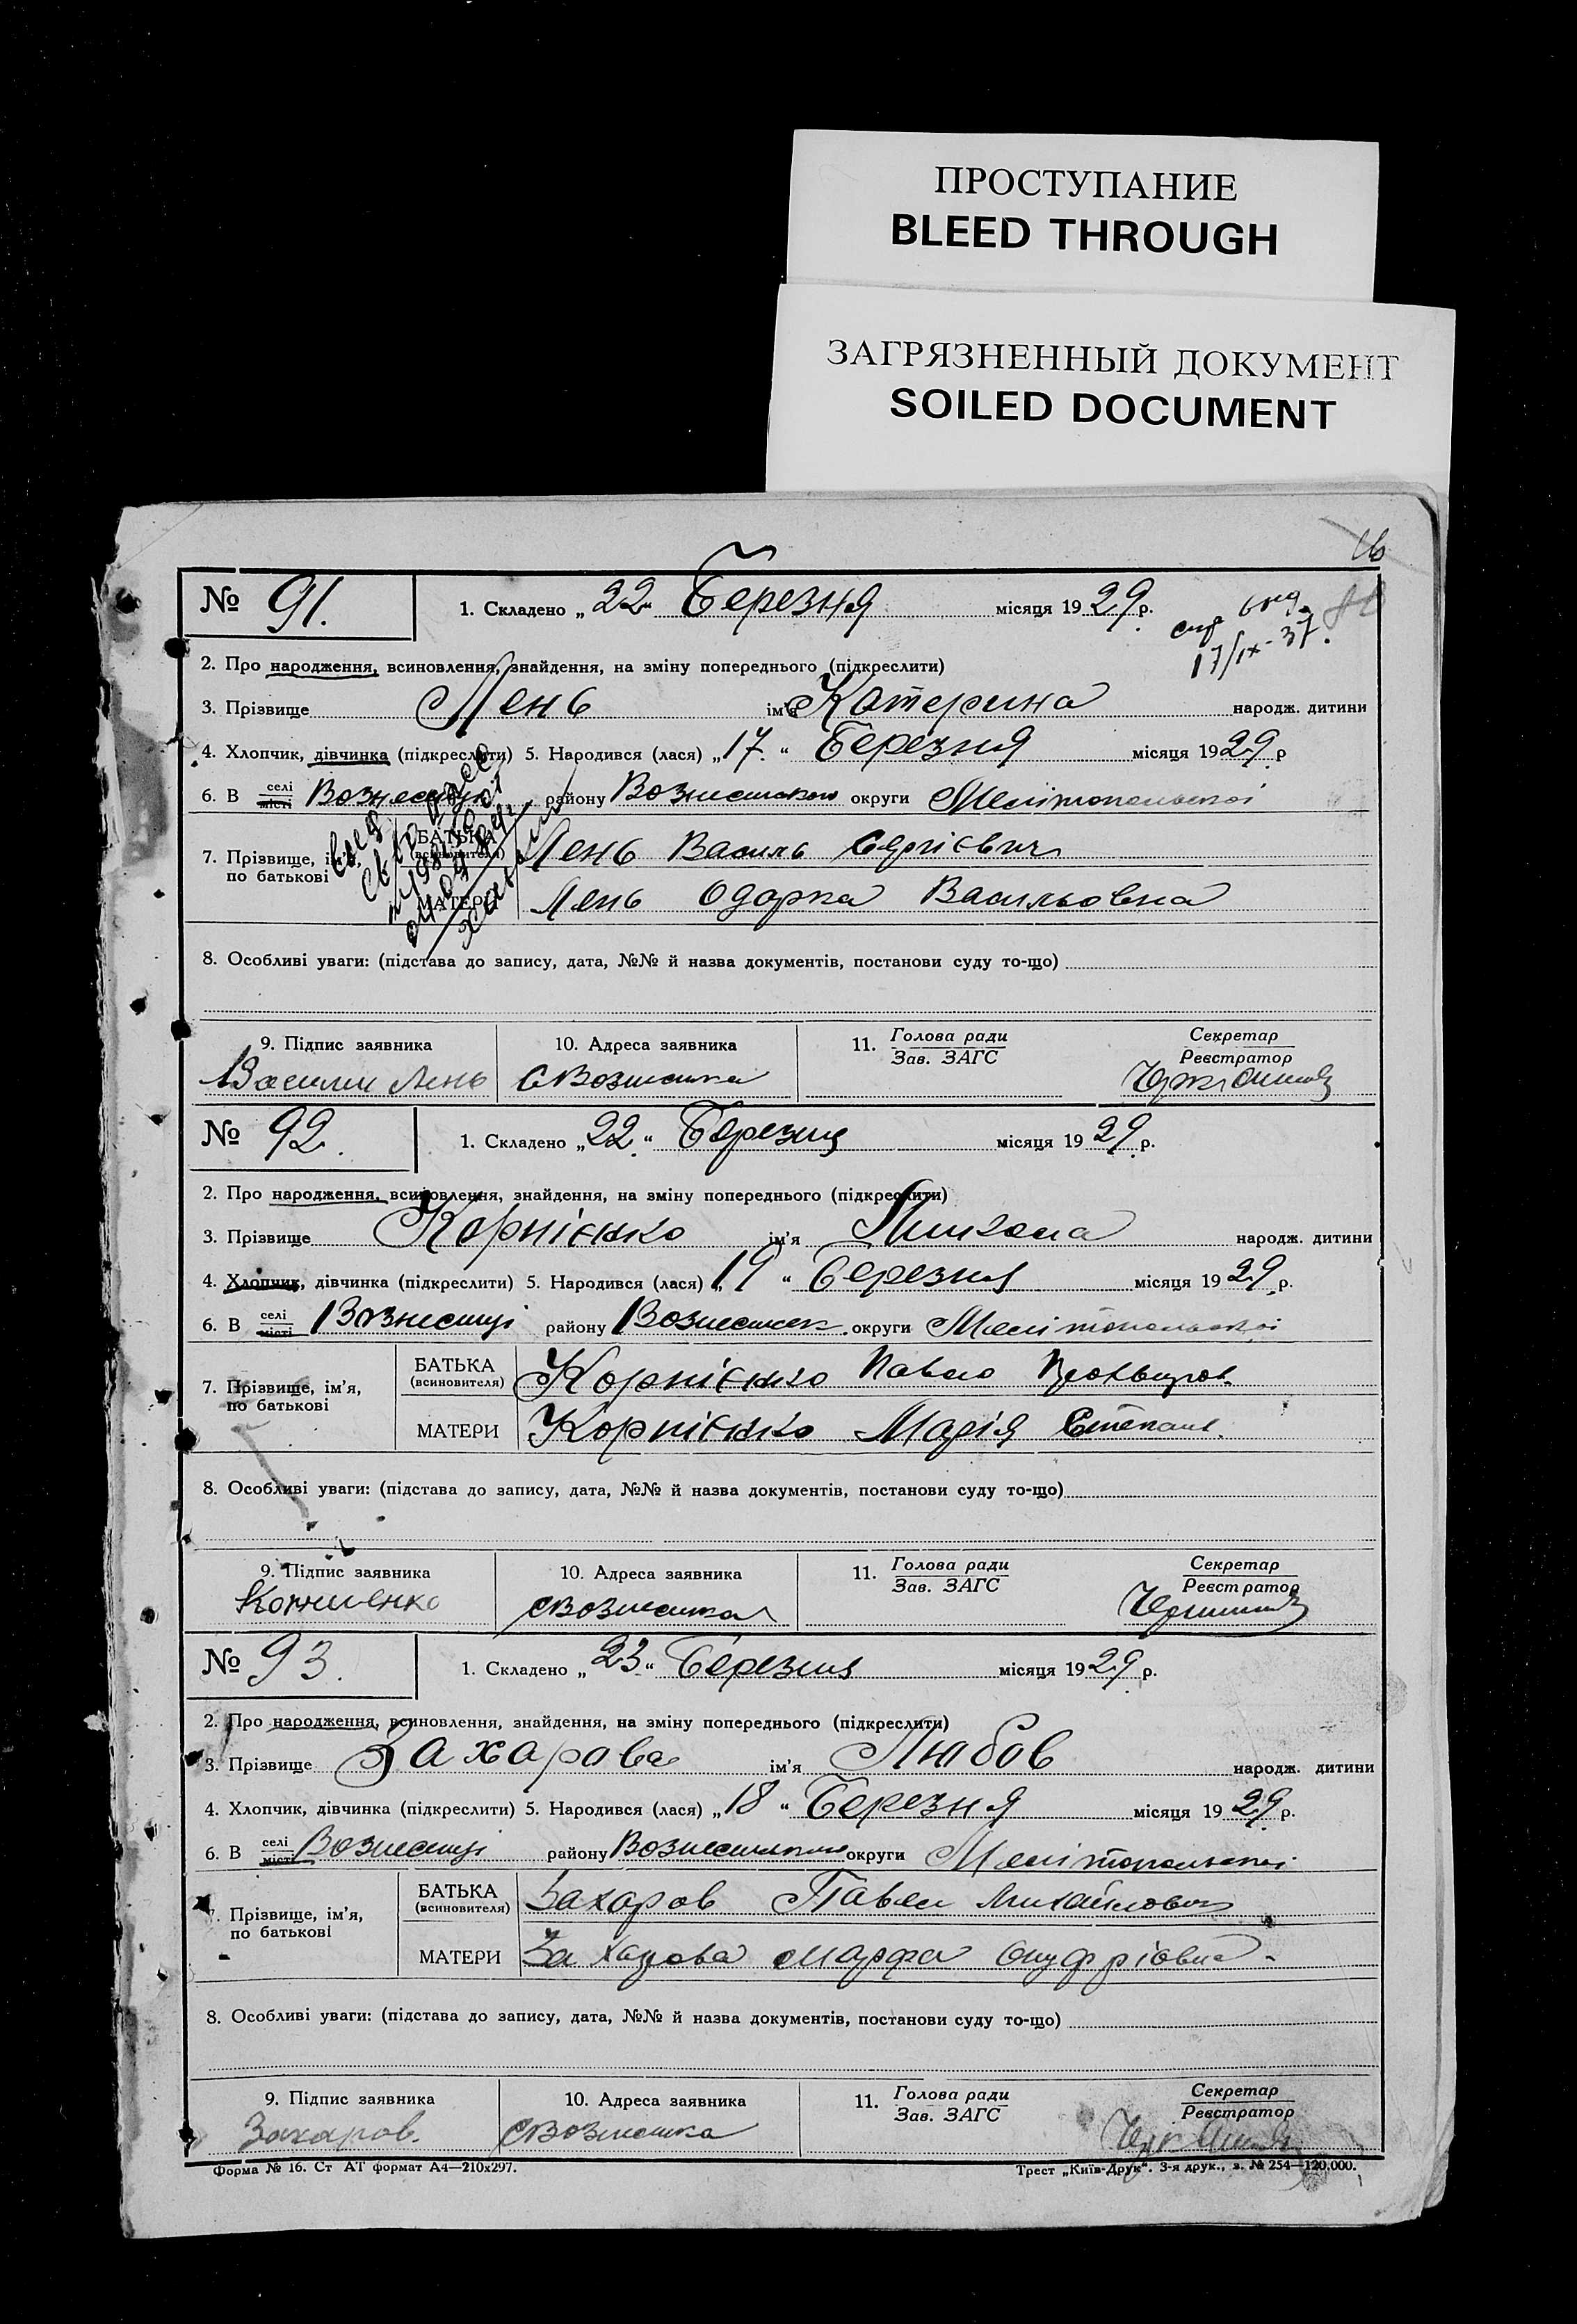 ПРОСТУПАНИЕ
BLEED THROUGH
ЗАГРЯЗНЕННЫЙ ДОКУМЕНТ
SOILED DOCUMENT
№ 91. 1. Складено „22“ Березня місяця 1929 р.
17/IX-37.
2. Про народження, всиновлення, знайдення, на зміну попереднього (підкреслити)
3. Прізвище Лень ім'я Катерина народж. дитини
4. Хлопчик, дівчинка (підкреслити) 5. Народився (лася) „17“ Березня місяця 1929 р
6. В селі місті району округи Мелітопольської
7. Прізвище, ім'я, по батькові
БАТЬКА (всиновителя) Лень Василь Сергієвич
МАТЕРИ Лень Одарка Васильовна
8. Особливі уваги: (підстава до запису, дата, №№ й назва документів, постанови суду то-що)
9. Підпис заявника 10. Адреса заявника 11. Голова ради Зав. ЗАГС Секретар Реєстратор
Лень
№ 92. 1. Складено „22“ Березня місяця 1929 р.
2. Про народження, всиновлення, знайдення, на зміну попереднього (підкреслити)
3. Прізвище Корнієнко ім'я Микола народж. дитини
4. Хлопчик, дівчинка (підкреслити) 5. Народився (лася) „19“ Березня місяця 1929 р.
6. В селі місті Вознесенці району округи Мелітопольської
7. Прізвище, ім'я, по батькові
БАТЬКА (всиновителя) Корнієнко Павло
МАТЕРИ Корнієнко Марія Степан.
8. Особливі уваги: (підстава до запису, дата, №№ й назва документів, постанови суду то-що)
9. Підпис заявника 10. Адреса заявника 11. Голова ради Зав. ЗАГС Секретар Реєстратор
№ 93. 1. Складено „23“ Березня місяця 1929 р.
2. Про народження, всиновлення, знайдення, на зміну попереднього (підкреслити)
3. Прізвище Захарова ім'я Любов народж. дитини
4. Хлопчик, дівчинка (підкреслити) 5. Народився (лася) „18“ Березня місяця 1929 р.
6. В селі місті Вознесенці району округи Мелітопольської
7. Прізвище, ім'я, по батькові
БАТЬКА (всиновителя) Захаров Павел Михайлович
МАТЕРИ Захарова Марфа Онуфріовна
8. Особливі уваги: (підстава до запису, дата, №№ й назва документів, постанови суду то-що)
9. Підпис заявника 10. Адреса заявника 11. Голова ради Зав. ЗАГС Секретар Реєстратор
Захаров.
Форма № 16. Ст АТ формат А4—210х297. Трест „Київ-Друк“. 3-я друк., з. № 254—120.000.